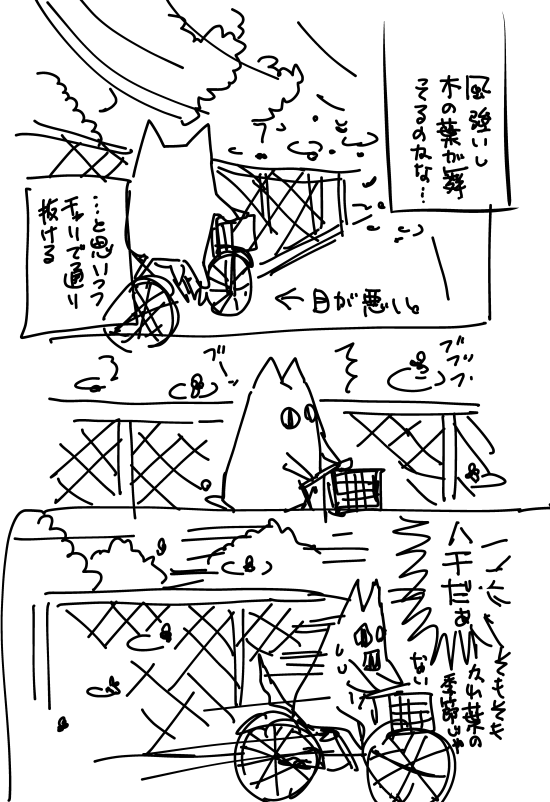 風強いし
木の葉が舞
ってるのかな…
…と思いつつ
チャリで通り
抜ける
←目が悪い。
ブーン
ブブッブ
ハチだぁ
そもそも
かれ葉の
季節じゃ
ない